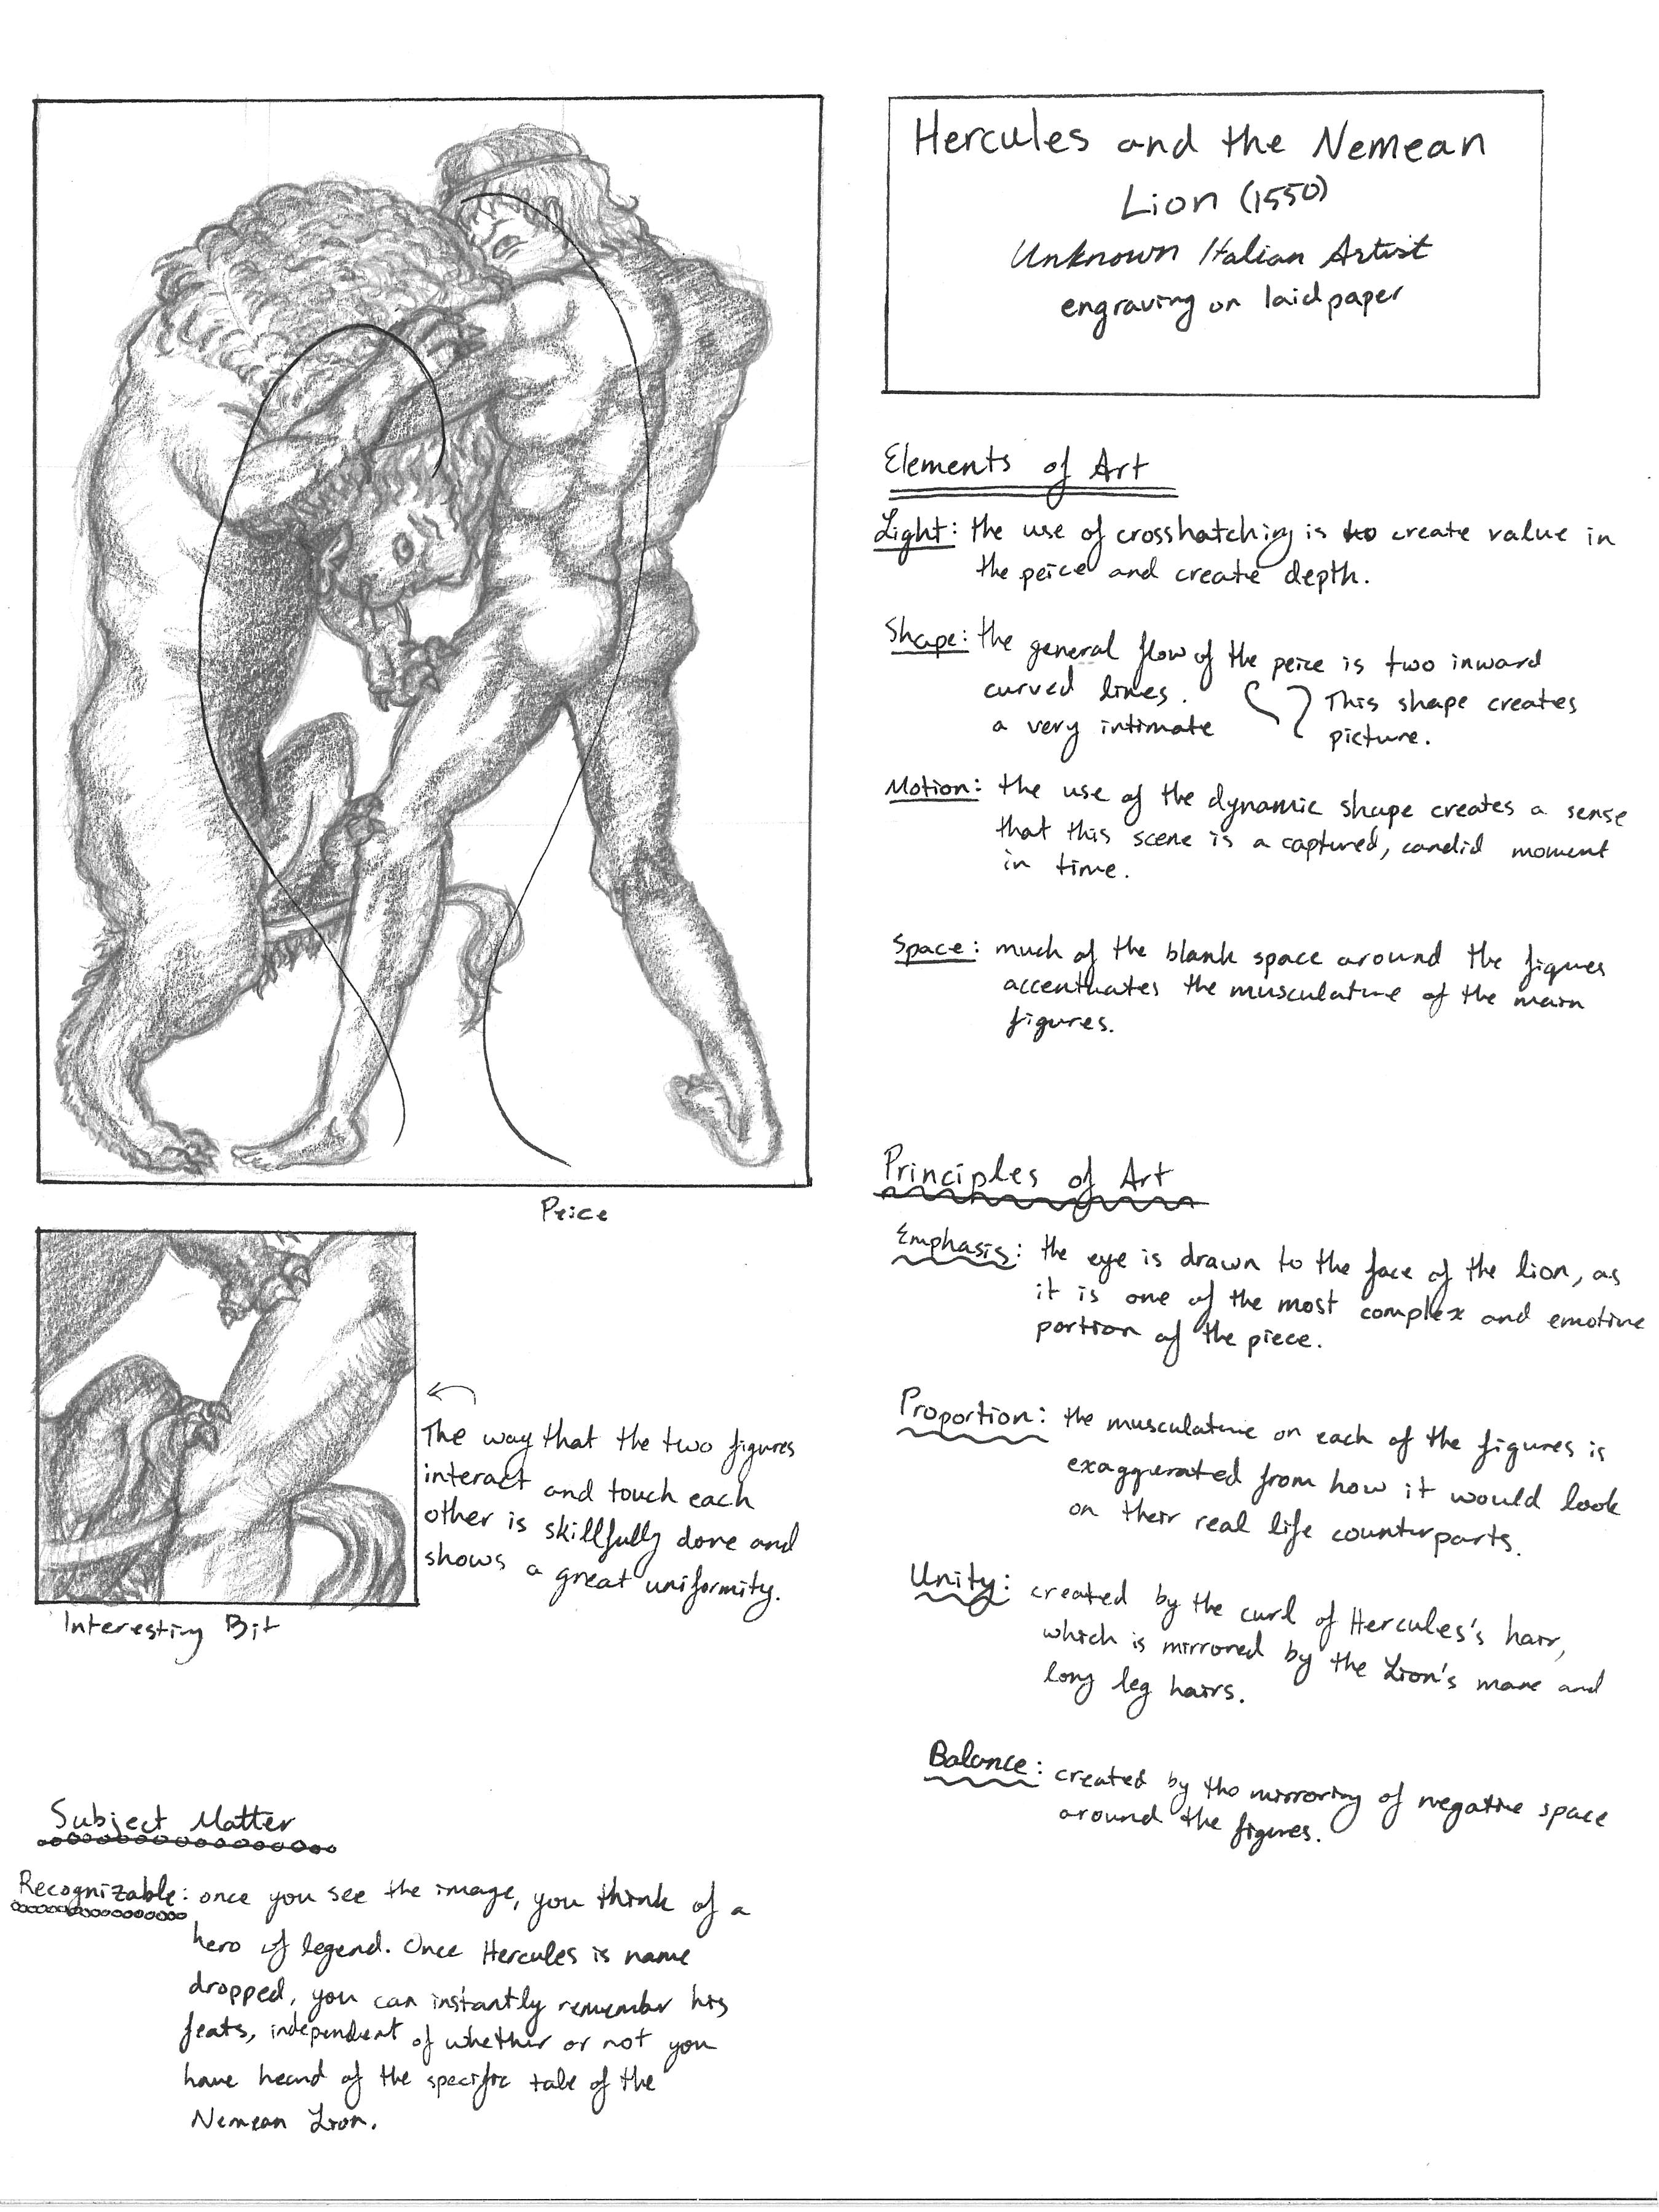 Hercules and the Nemean
Lion (1550)
Unknown Italian Artist
engraving on laid paper
Elements of Art
Light: the use of crosshatching is to create value in
the peice and create depth.
Shape: the general flow of the peice is two inward
curved lines. This shape creates
a very intimate picture.
Motion: the use of the dynamic shape creates a sense
that this scene is a captured, candid moment
in time.
Space: much of the blank space around the figures
accenthates the musculature of the main
figures.
Principles of Art
Emphasis: the eye is drawn to the face of the lion, as
it is one of the most complex and emotive
portion of the piece.
Proportion: the musculature on each of the figures is
exaggerated from how it would look
on their real life counterparts.
Unity: created by the curl of Hercules's hair,
which is mirrored by the Lion's mane and
long leg hairs.
Balance: created by the mirroring of negative space
around the figures.
Peice
The way that the two figures
interact and touch each
other is skillfully done and
shows a great uniformity.
Interesting Bit
Subject Matter
Recognizable: once you see the image, you think of a
hero of legend. Once Hercules is name
dropped, you can instantly remember his
feats, independent of whether or not you
have heard of the specific tale of the
Nemean Lion.